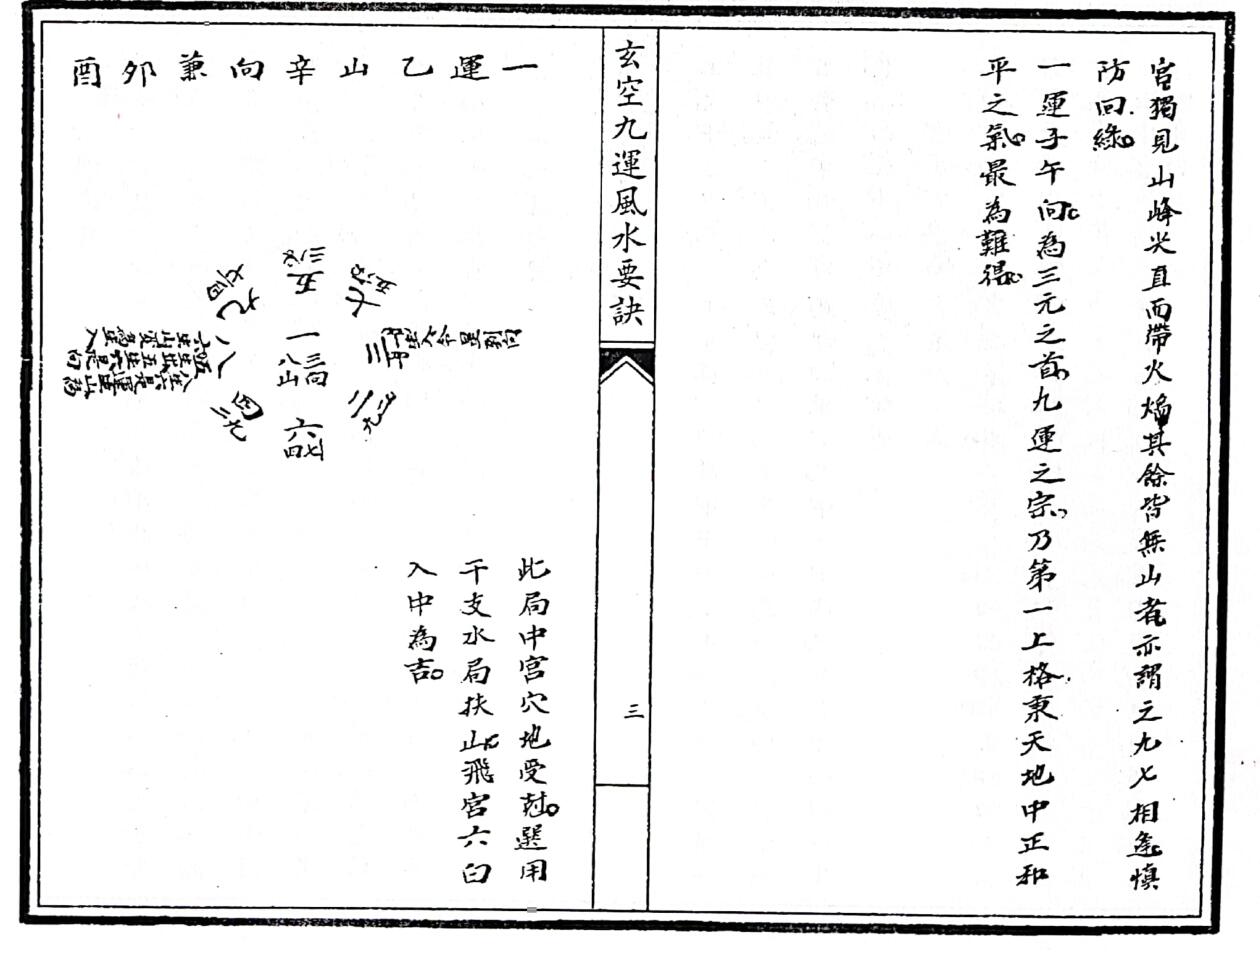 宮獨見山峰尖直而帶火焰其餘皆無山者亦謂之九七相逢慎
防回綠
一運子午向為三元之首九運之宗乃第一上格秉天地中正和
平之氣最為難得
玄空九運風水要訣
三
一運乙山辛向兼卯酉
五
七
九
三
一
八
三向
八山
二
六
四七
四
二九
此局中宮穴地受尅選用
干支水局扶山飛宮六白
入中為吉